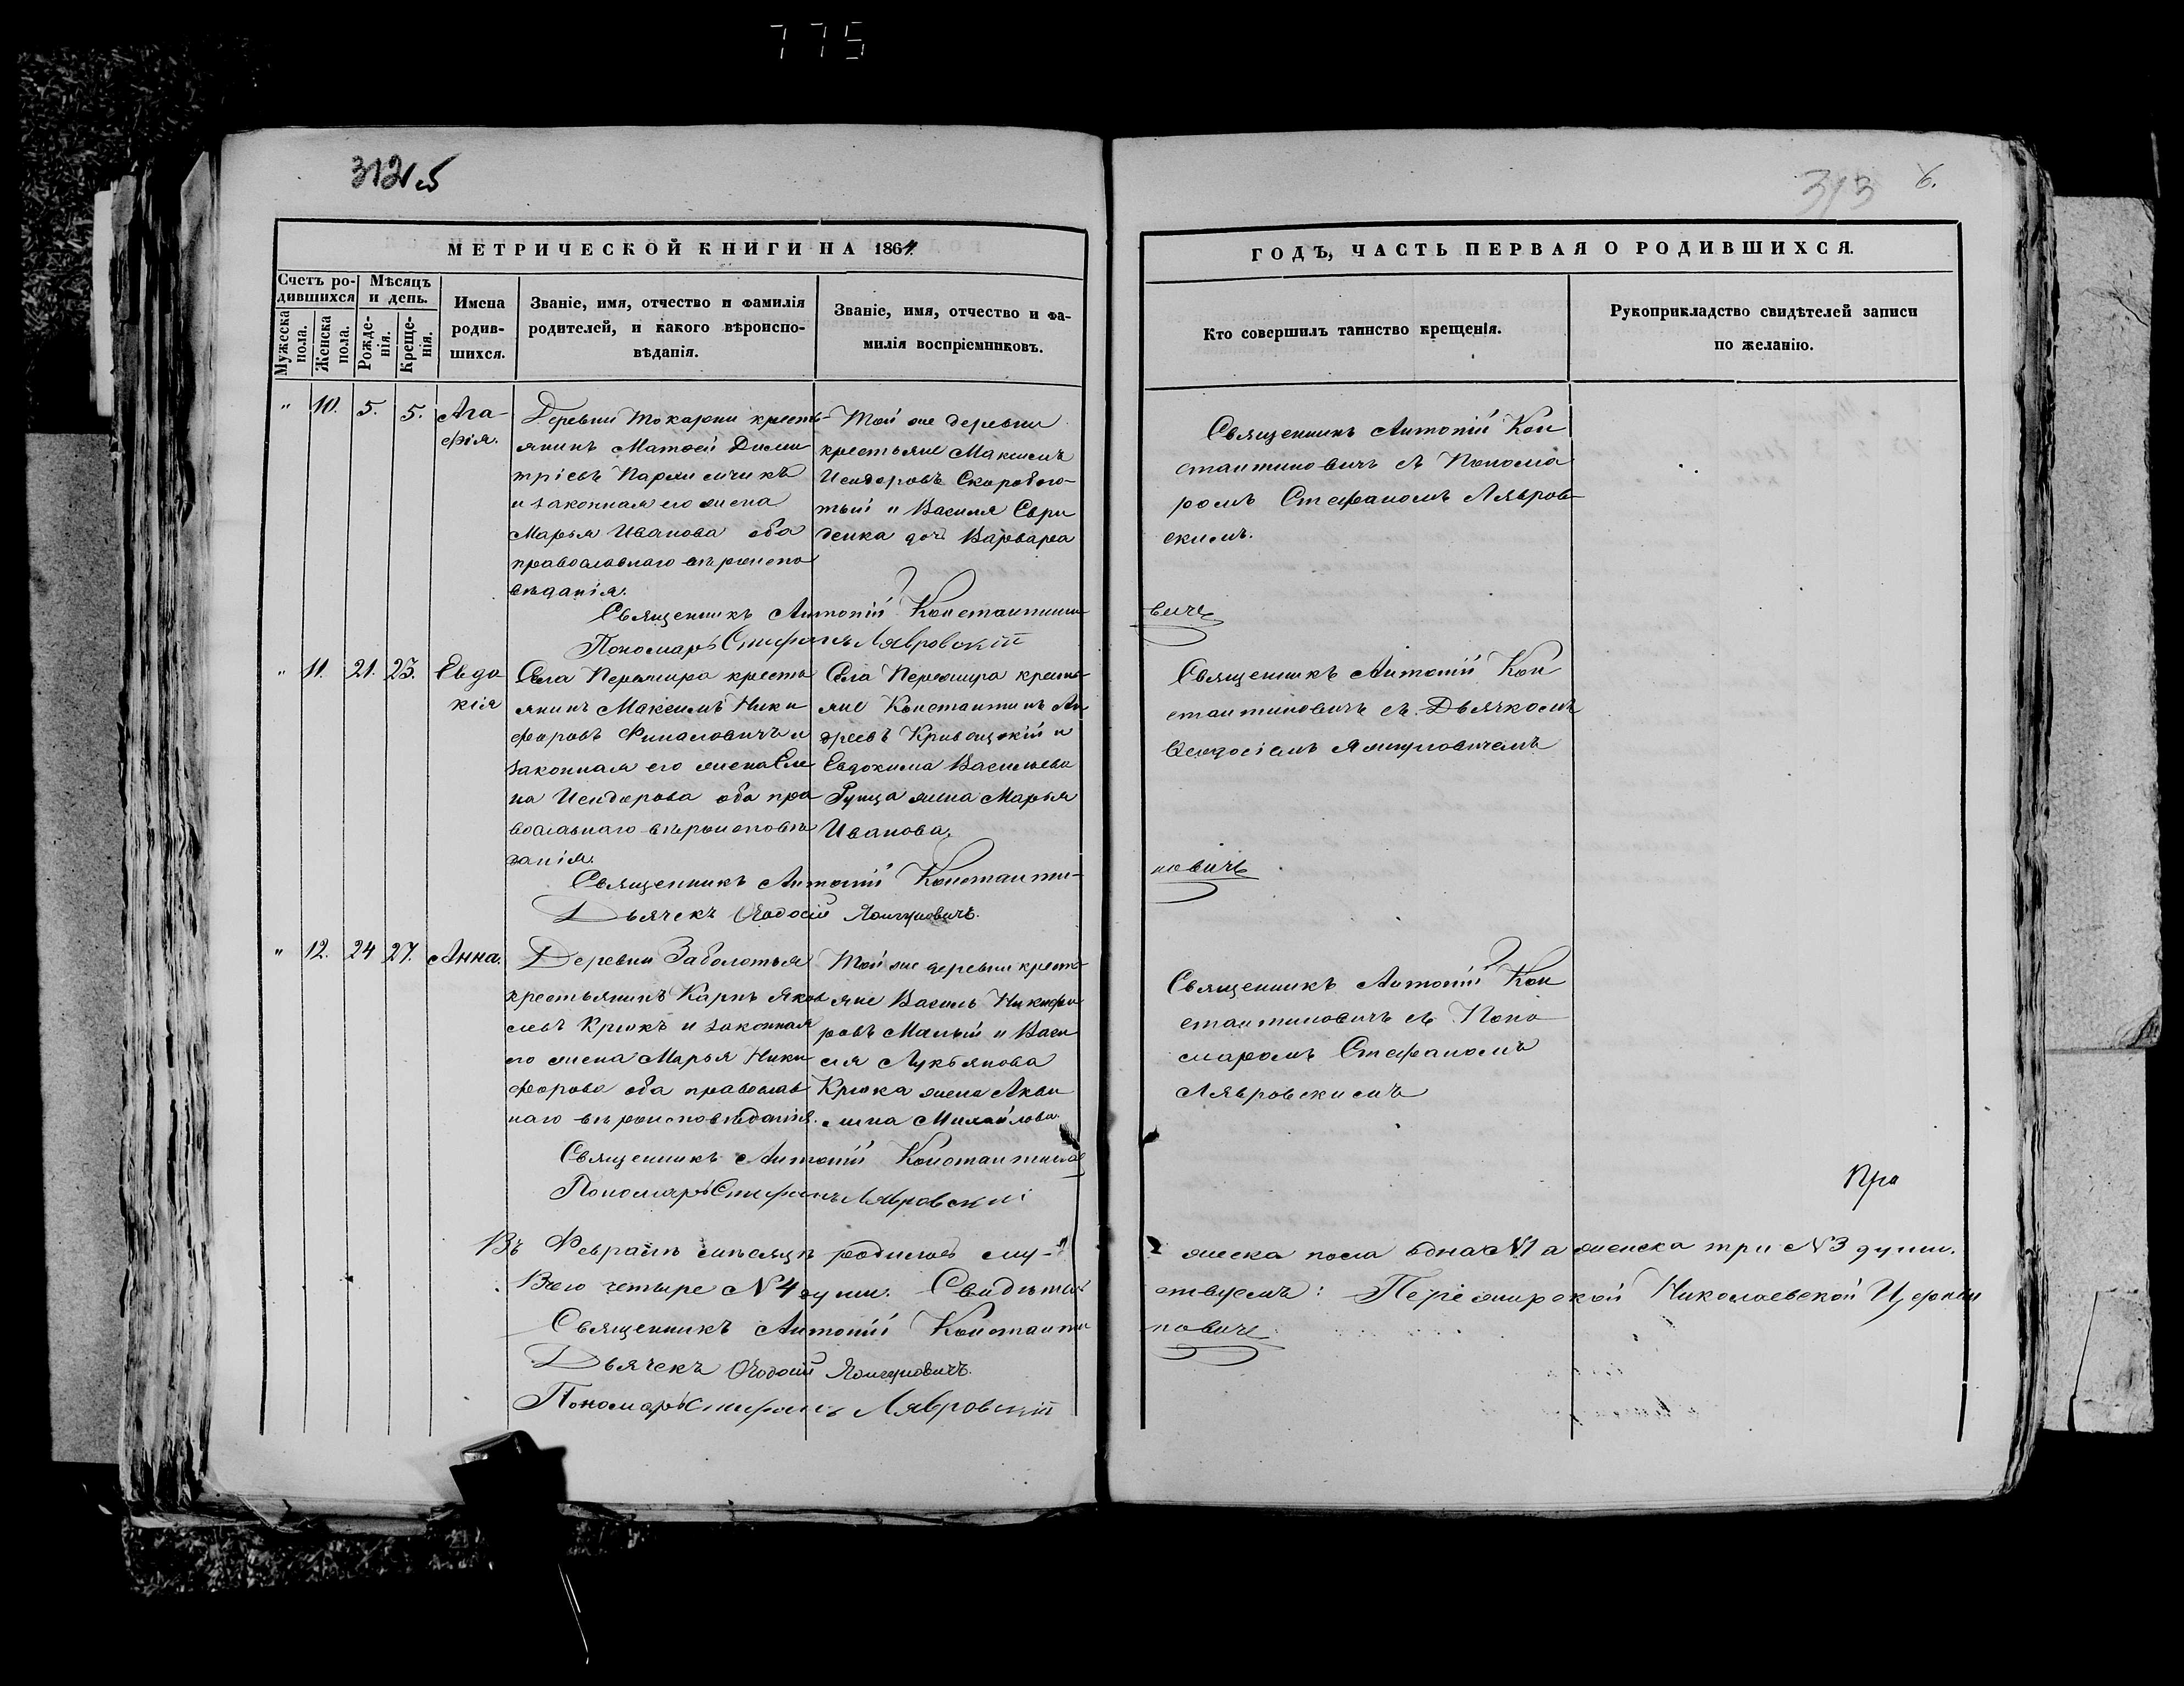 775
312 об
313 6.
МЕТРИЧЕСКОЙ КНИГИ НА 1864
ГОДЪ, ЧАСТЬ ПЕРВАЯ О РОДИВШИХСЯ.
Счетъ ро-
дившихся
Мужеска
пола.
Женска
пола.
Мѣсяцъ
и день.
Рожде-
нія.
Креще-
нія.
Имена
родив-
шихся.
Званіе, имя, отчество и фамилія
родителей, и какого вѣроиспо-
вѣданія.
Званіе, имя, отчество и фа-
милія воспріемниковъ.
Кто совершилъ таинство крещенія.
Рукоприкладство свидѣтелей записи
по желанію.
" 10. 5. 5. Ага-
фія.
Деревни Токарни кресть-
янинъ Матѳей Дими
тріевъ
и законная его жена
Марья Иванова оба
православнаго вѣроиспо
вѣданія.
Той же деревни
крестьяне Максимъ
Исидоровъ Скоробога-
тый и Василя Сври
денка доч Варвара
Священникъ Антоній Кон
стантиновичъ съ Понома
ромъ Стефаномъ Лявров-
скимъ.
Священникъ Антоній Константино-
вичъ
Пономарь Стефанъ Лявровскій
" 11. 21. 23. Евдо
кія
Села Пережира кресть
янинъ Максимъ Ники
форовъ Финаловичъ и
законная его жена Еле
на Исидорова оба пра
вославнаго вѣроисповѣ
данія.
Села Пережира кресть-
яне Константинъ Ан
дреевъ и
Евдокима Васильева
жена Марья
Иванова.
Священникъ Антоній Кон
стантиновичъ съ Дьячкомъ
Ѳеодосіемъ Ямчуновичемъ
Священникъ Антоній Константи-
новичъ
Дьячекъ Ѳеодосій
" 12. 24 27. Анна.
Деревни Заболотья
крестьянинъ Карпъ Яков
левъ Крюкъ и законная
его жена Марья Ники
форова оба православ
наго вѣроисповѣданія.
Той же деревни кресть-
яне Василь Никифо
ровъ Малый и Васи
ля Лукьянова
Крюка жена Акви
лина Михайлова.
Священникъ Антоній Кон
стантиновичъ съ Поно
маромъ Стефаномъ
Лявровскимъ
Священникъ Антоній Константинов
Пономарь Стефанъ Лявровскій
Про
Въ Февралѣ мѣсяцѣ родилось му- жеска пола одна N1 а женска три N3 души.
Всего четыре N4 души. Свидѣтель ствуемъ: Пережирской Николаевской Церкви
Священникъ Антоній Константи новичъ
Дьячекъ Ѳеодосій
Пономарь Стефанъ Лявровскій